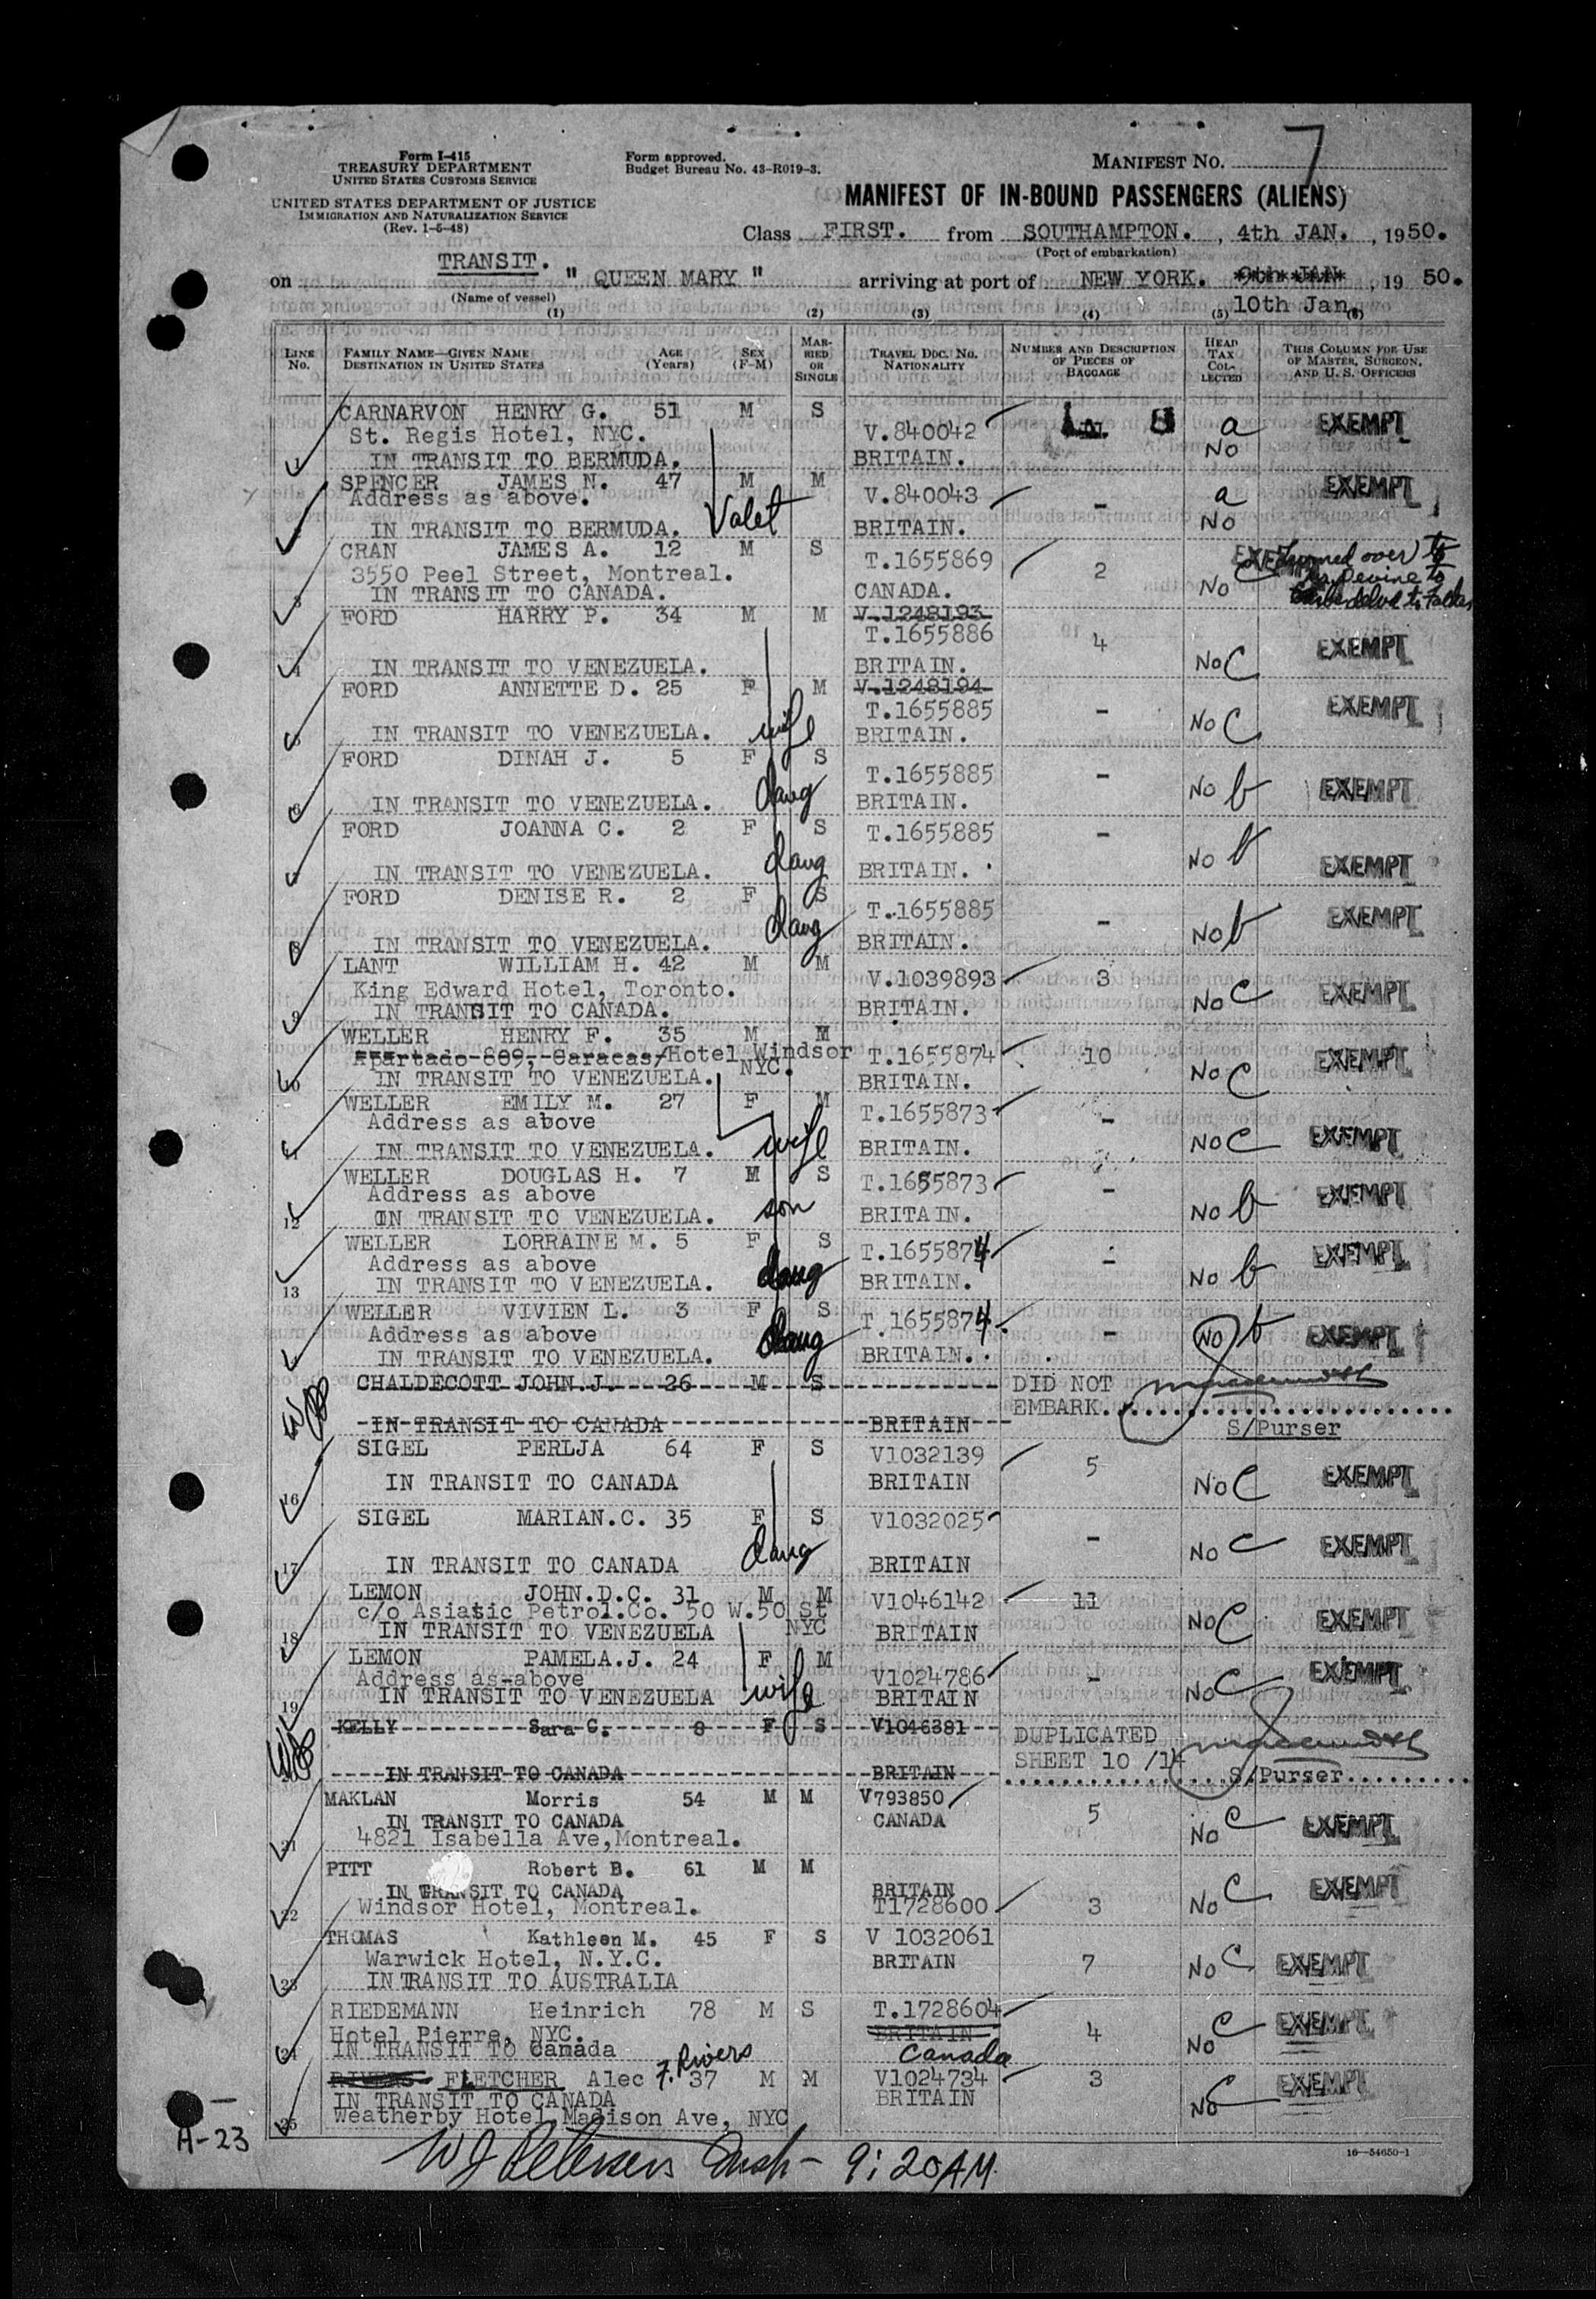 Form I-415
TREASURY DEPARTMENT
UNITED STATES CUSTOMS SERVICE
UNITED STATES DEPARTMENT OF JUSTICE
IMMIGRATION AND NATURALIZATION SERVICE
(Rev. 1-5-48)
Form approved.
Budget Bureau No. 43-R019-3.
MANIFEST NO. 7
MANIFEST OF IN-BOUND PASSENGERS (ALIENS)
Class FIRST. from SOUTHAMPTON. , 4th JAN. , 1950.
(Port of embarkation)
TRANSIT.
on " QUEEN MARY " arriving at port of NEW YORK. 9th JAN , 19 50.
(Name of vessel)
10th Jan.
(1) (2) (3) (4) (5) (6)
LINE No. FAMILY NAME—GIVEN NAME DESTINATION IN UNITED STATES AGE (Years) SEX (F-M) MARRIED OR SINGLE TRAVEL DOC. NO. NATIONALITY NUMBER AND DESCRIPTION OF PIECES OF BAGGAGE HEAD TAX COLLECTED THIS COLUMN FOR USE OF MASTER, SURGEON, AND U. S. OFFICERS
CARNARVON HENRY G. 51 M S V.840042 a EXEMPT
St. Regis Hotel, NYC. No
1 IN TRANSIT TO BERMUDA. BRITAIN.
SPENCER JAMES N. 47 M M V.840043 - a EXEMPT
Address as above. No
IN TRANSIT TO BERMUDA. Valet BRITAIN.
CRAN JAMES A. 12 M S T.1655869 2 EXEMPT Turned over to
3550 Peel Street, Montreal. No Devine to
3 IN TRANSIT TO CANADA. CANADA. to Father
FORD HARRY P. 34 M M V.1248193
T.1655886 4 EXEMPT
4 IN TRANSIT TO VENEZUELA. BRITAIN. No C
FORD ANNETTE D. 25 F M V.1248194
T.1655885 - No C EXEMPT
IN TRANSIT TO VENEZUELA. wife BRITAIN.
FORD DINAH J. 5 F S T.1655885 - No b EXEMPT
IN TRANSIT TO VENEZUELA. daug BRITAIN.
FORD JOANNA C. 2 F S T.1655885 - No b EXEMPT
IN TRANSIT TO VENEZUELA. daug BRITAIN.
FORD DENISE R. 2 F S T.1655885 - No b EXEMPT
8 IN TRANSIT TO VENEZUELA. daug BRITAIN.
LANT WILLIAM H. 42 M M V.1039893 3 No C EXEMPT
King Edward Hotel, Toronto.
9 IN TRANSIT TO CANADA. BRITAIN.
WELLER HENRY F. 35 M M T.1655874 10 No C EXEMPT
Apartado 809, Caracas/Hotel Windsor NYC.
10 IN TRANSIT TO VENEZUELA. BRITAIN.
WELLER EMILY M. 27 F M T.1655873 - No C EXEMPT
Address as above
11 IN TRANSIT TO VENEZUELA. wife BRITAIN.
WELLER DOUGLAS H. 7 M S T.1655873 - No b EXEMPT
Address as above
12 IN TRANSIT TO VENEZUELA. son BRITAIN.
WELLER LORRAINE M. 5 F S T.1655874 - No b EXEMPT
Address as above
13 IN TRANSIT TO VENEZUELA. daug BRITAIN.
WELLER VIVIEN L. 3 F S T.1655874. - No b EXEMPT
Address as above
IN TRANSIT TO VENEZUELA. daug BRITAIN.
CHALDECOTT JOHN.J. 26 M S DID NOT
EMBARK.
IN TRANSIT TO CANADA BRITAIN S/Purser
SIGEL PERLJA 64 F S V1032139 5
16 IN TRANSIT TO CANADA BRITAIN No C EXEMPT
SIGEL MARIAN.C. 35 F S V1032025 - No C EXEMPT
17 IN TRANSIT TO CANADA daug BRITAIN
LEMON JOHN.D.C. 31 M M V1046142 11 No C EXEMPT
c/o Asiatic Petrol.Co. 50 W.50 St NYC
18 IN TRANSIT TO VENEZUELA BRITAIN
LEMON PAMELA.J. 24 F M V1024786 - No C EXEMPT
Address as above
19 IN TRANSIT TO VENEZUELA wife BRITAIN
KELLY Sara C. 8 F S V1046381 DUPLICATED
SHEET 10 /14
IN TRANSIT TO CANADA BRITAIN S/Purser
MAKLAN Morris 54 M M V793850 5 No C EXEMPT
IN TRANSIT TO CANADA CANADA
21 4821 Isabella Ave,Montreal.
PITT Robert B. 61 M M
IN TRANSIT TO CANADA BRITAIN
22 Windsor Hotel, Montreal. T1728600 3 No C EXEMPT
THOMAS Kathleen M. 45 F S V 1032061
Warwick Hotel, N.Y.C. BRITAIN 7 No C EXEMPT
23 IN TRANSIT TO AUSTRALIA
RIEDEMANN Heinrich 78 M S T.1728604
Hotel Pierre, NYC. BRITAIN 4 No C EXEMPT
24 IN TRANSIT TO Canada Canada
F. Rivers
RIVERS FLETCHER Alec 37 M M V1024734 3 No C EXEMPT
IN TRANSIT TO CANADA BRITAIN
25 Weatherby Hotel,Madison Ave, NYC
A-23
W J Petersen Insp - 9:20 AM.
16—54650-1